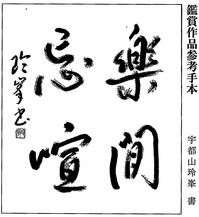 鑑賞作品参考手本
宇都山玲峯 書
樂間
忘喧
玲峯書